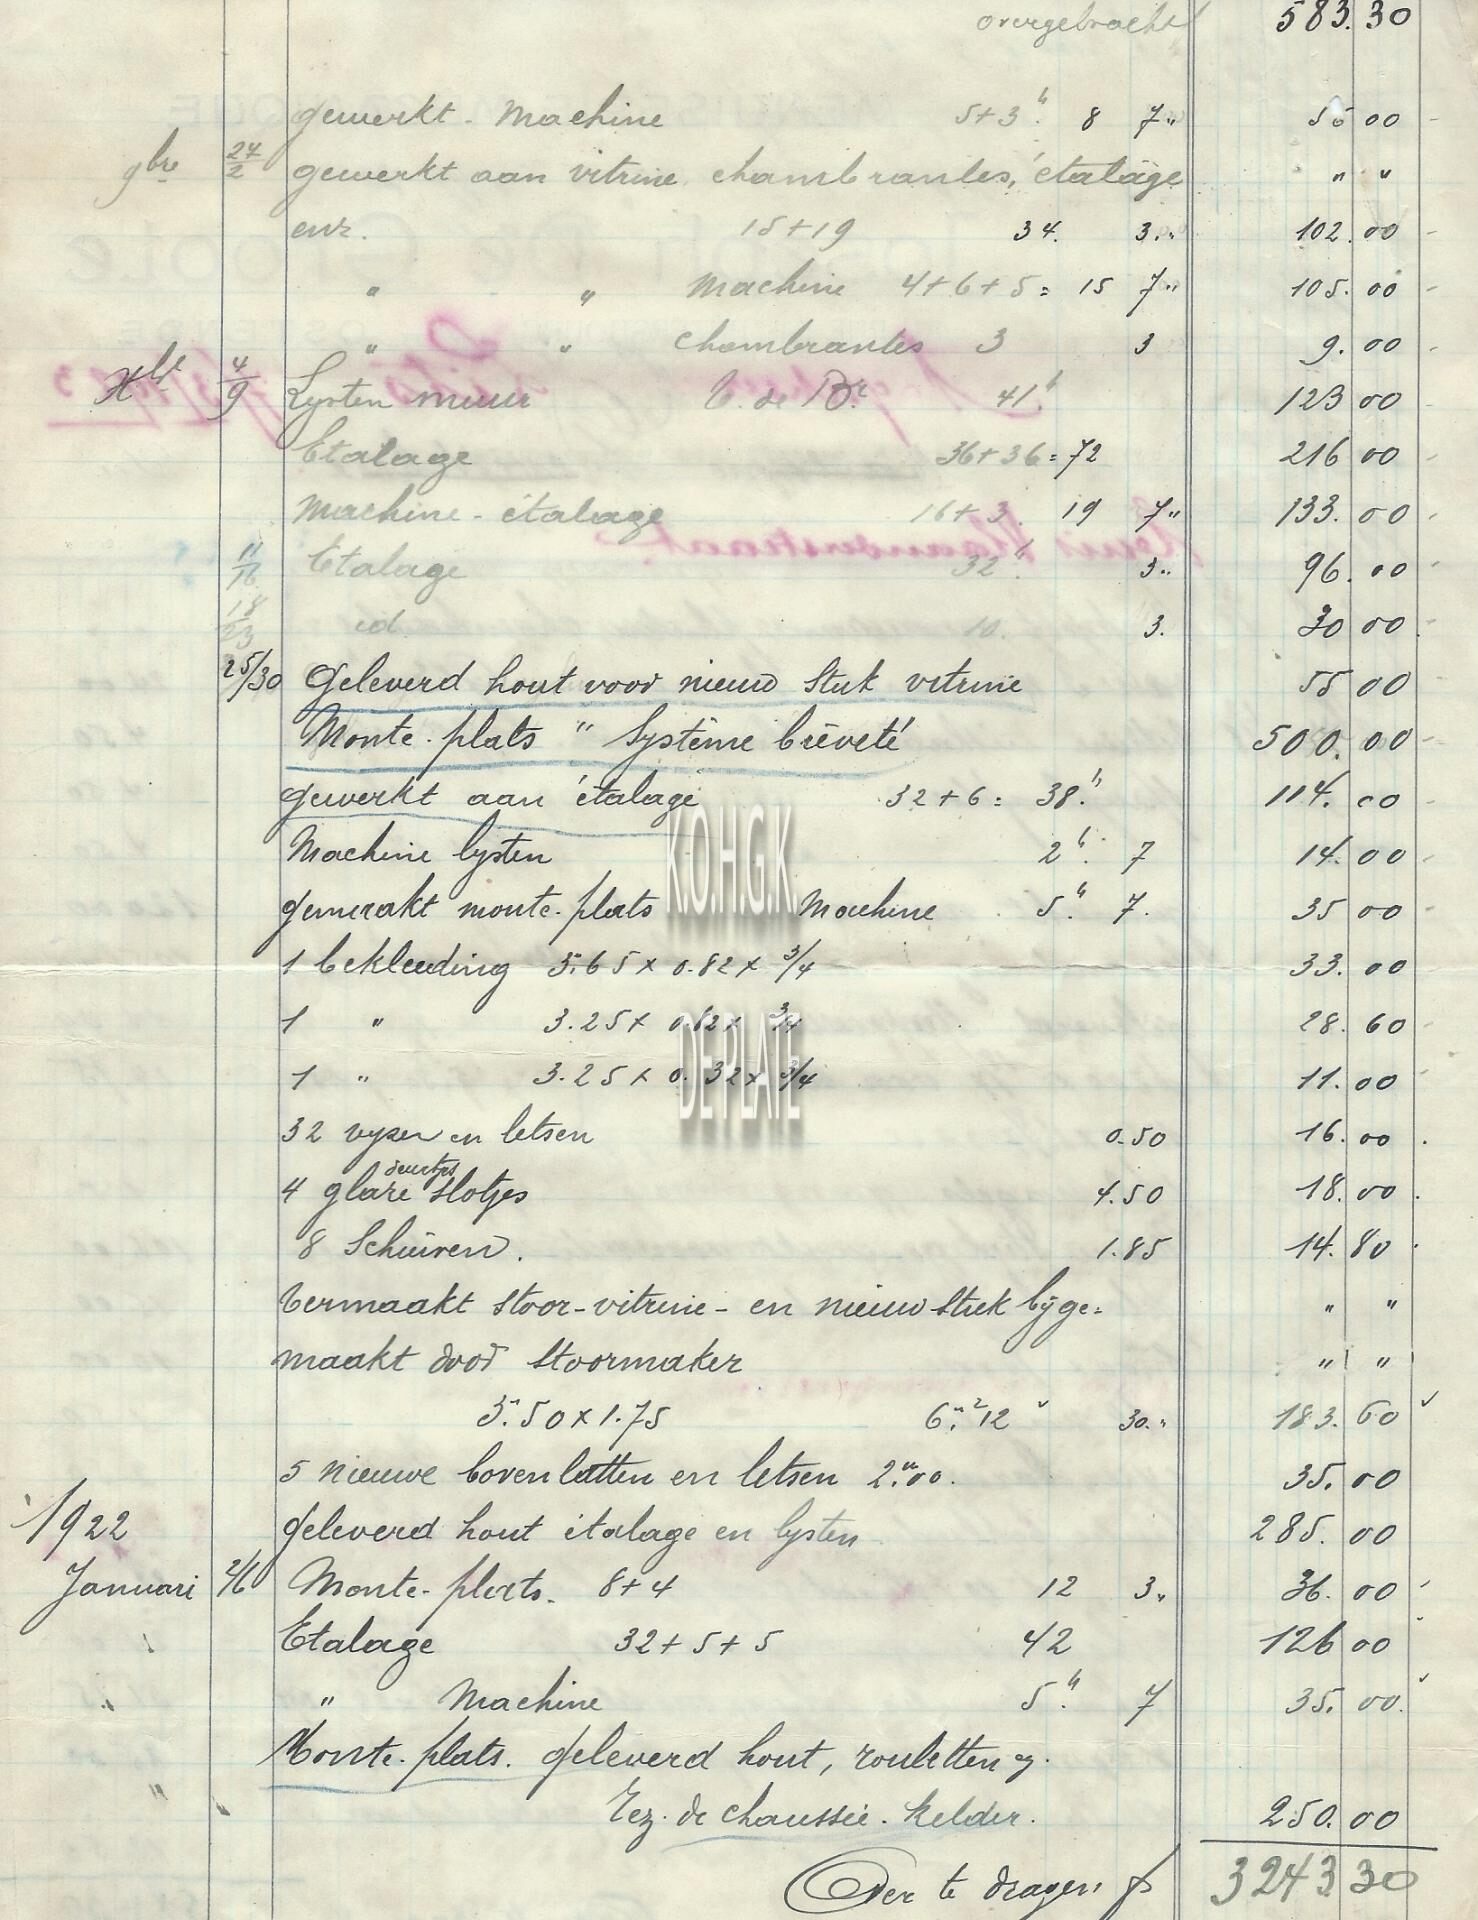 overgebracht 583.30
gewerkt - Machine 5+3 h. 8 7" 56 00
9bre 27/2 gewerkt aan vitrine, chambrantes, étalage " "
enz. 15+19 34. 3." 102.00
" " Machine 4+6+5 = 15 7" 105.00
" " Chambrantes 3 3 9.00
Xbr 4/9 Lysten muur 41 h. 123 00
Etalage 36+36 = 72 216 00
Machine - étalage 16+3. 19 7" 133.00
11/16 Etalage 32 h. 3." 96.00
18/23 id. 10. 3. 30 00
25/30 Geleverd hout voor nieuw stuk vitrine 55 00
Monte-plats " Système brèveté 500.00
gewerkt aan étalage 32+6 = 38 h. 114.00
Machine lysten 2 h. 7 14.00
gemaakt monte-plats Machine 5 h. 7. 35 00
1 bekleeding 3.65 x 0.82 x 3/4 33.00
1 " 3.25 x 0.82 x 3/4 28.60
1 " 3.25 x 0.32 x 3/4 11.00
32 vyzen en letsen 0.50 16.00
4 glaze deurtjes slotjes 4.50 18.00
8 Schuiven. 1.85 14.80
Vermaakt stoor-vitrine- en nieuw stuk byge= " "
maakt door stoormaker " "
3.50 x 1.75 6.m2 12 30." 183.60
5 nieuwe bovenlatten en letsen 2.m00. 35.00
1922 Geleverd hout étalage en lysten 285.00
Januari 2/6 Monte-plats. 8+4 12 3" 36.00
Etalage 32+5+5 42 126 00
" Machine 5 h. 7 35.00
Monte-plats. Geleverd hout, rouletten
Rez-de chaussée. Kelder. 250.00
Over te dragen fr 3243 30
K.O.H.G.K.
DE PLATE